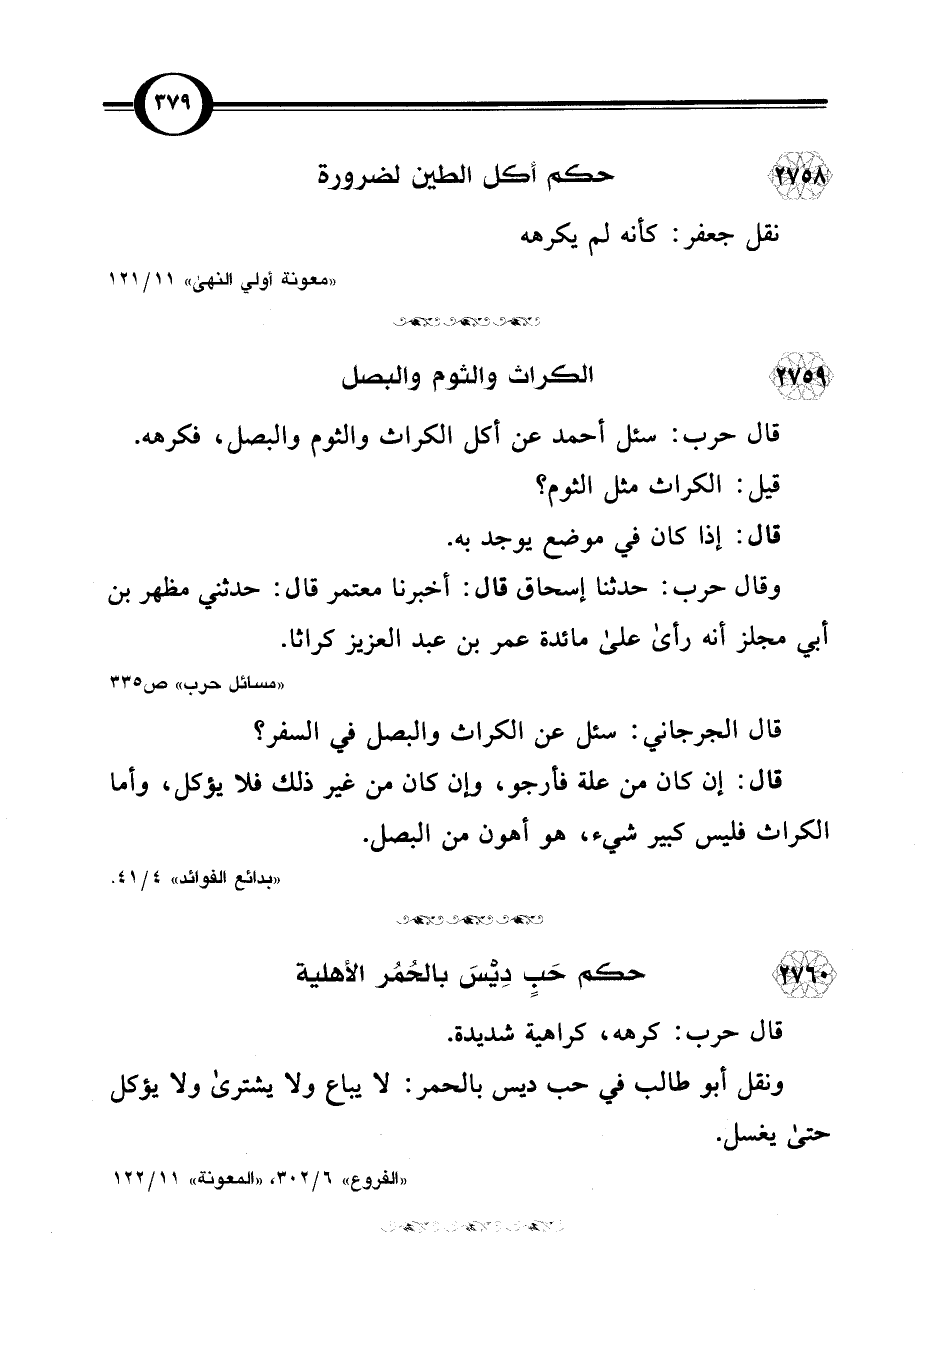 ٣٧٩
٢٧٥٨ حكم أكل الطين لضرورة
نقل جعفر: كأنه لم يكرهه
«معونة أولي النهىٰ» ١٢١/١١
٢٧٥٩ الكراث والثوم والبصل
قال حرب: سئل أحمد عن أكل الكراث والثوم والبصل، فكرهه.
قيل: الكراث مثل الثوم؟
قال: إذا كان في موضع يوجد به.
وقال حرب: حدثنا إسحاق قال: أخبرنا معتمر قال: حدثني مظهر بن
أبي مجلز أنه رأىٰ علىٰ مائدة عمر بن عبد العزيز كراثا.
«مسائل حرب» ص٣٣٥
قال الجرجاني: سئل عن الكراث والبصل في السفر؟
قال: إن كان من علة فأرجو، وإن كان من غير ذلك فلا يؤكل، وأما
الكراث فليس كبير شيء، هو أهون من البصل.
«بدائع الفوائد» ٤١/٤.
٢٧٦٠ حكم حَبٍ دِيْسَ بالحُمُر الأهلية
قال حرب: كرهه، كراهية شديدة.
ونقل أبو طالب في حب ديس بالحمر: لا يباع ولا يشترىٰ ولا يؤكل
حتىٰ يغسل.
«الفروع» ٣٠٢/٦، «المعونة» ١٢٢/١١